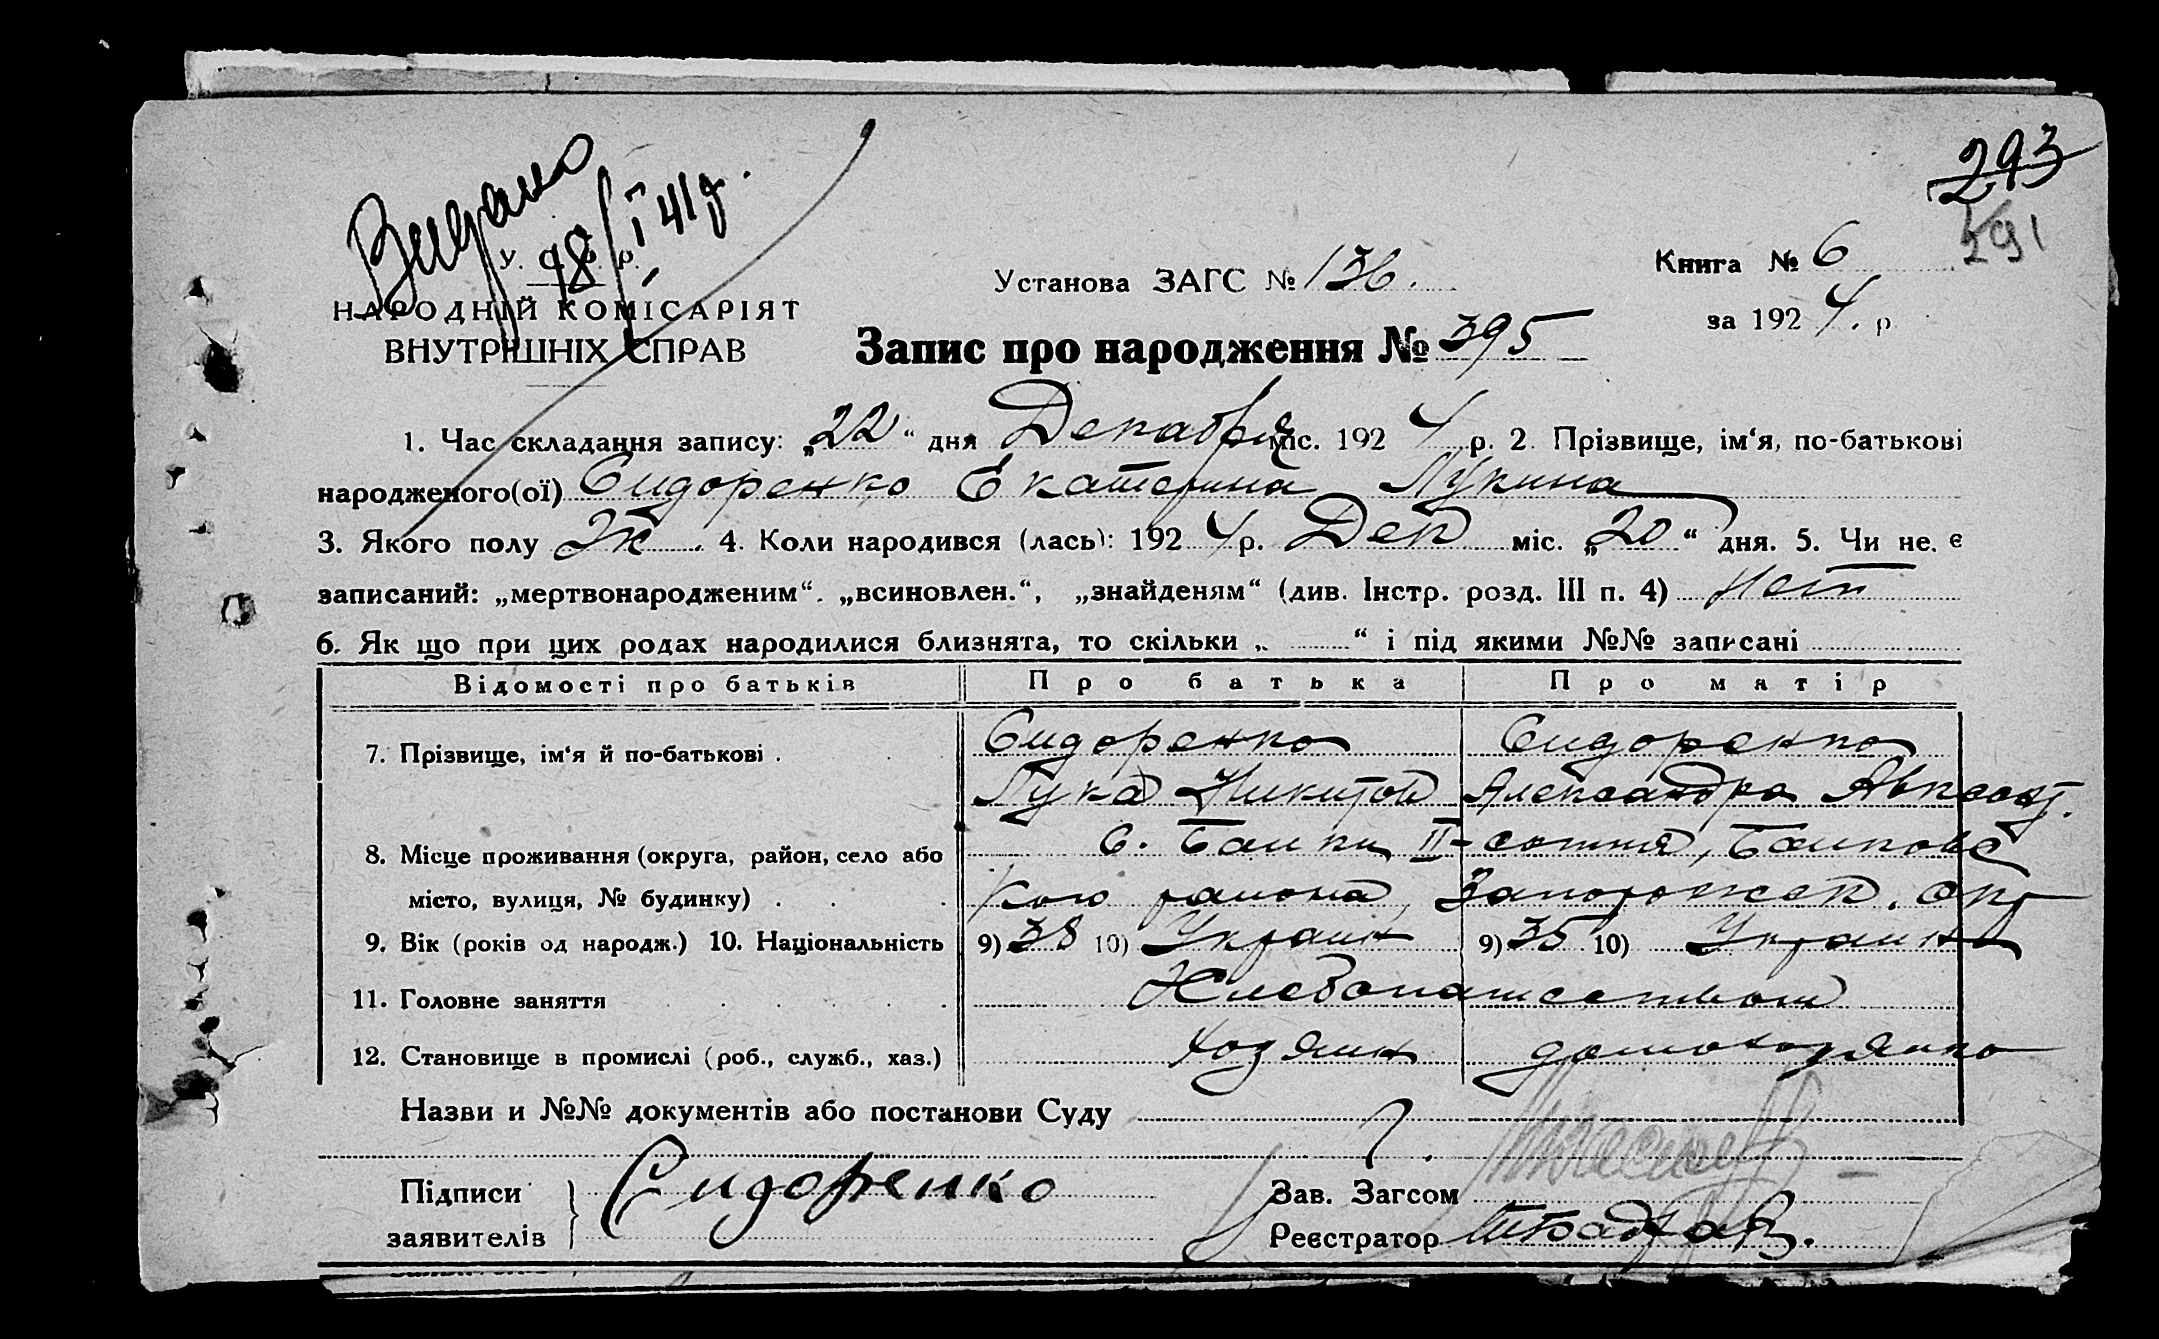 293
291
Видано
18/I 41р.
У. С. Р. Р.
НАРОДНІЙ КОМІСАРІЯТ
ВНУТРІШНІХ СПРАВ
Установа ЗАГС № 136.
Книга № 6
за 1924. р
Запис про народження № 395
1. Час складання запису: „22“ дня Декабря міс. 1924 р. 2. Прізвище, ім‘я, по-батькові
народженого(ої) Сидоренко Екатерина Лукина
3. Якого полу Ж. 4. Коли народився (лась): 1924 р. Дек міс. „20“ дня. 5. Чи не є
записаний: „мертвонародженим“. „всиновлен.“, „знайденям“ (див. Інстр. розд. III п. 4) Нет
6. Як що при цих родах народилися близнята, то скільки „ “ і під якими №№ записані
Відомості про батьків Про батька Про матір
7. Прізвище, ім‘я й по-батькові . Сидоренко Сидоренко
Лука Никитов Александра
8. Місце проживання (округа, район, село або С. Балки II-сотня, Балковс
місто, вулиця, № будинку) . . . кого района, Запорожск. окр
9. Вік (років од народж.) 10. Національність 9) 38 10) Украин 9) 35 10) Украинка
11. Головне заняття . . . . Хлебопашеством
12. Становище в промислі (роб., служб., хаз.) хозяин домохозяйка
Назви и №№ документів або постанови Суду
Підписи
заявителів
Сидоренко
Зав. Загсом
Реєстратор